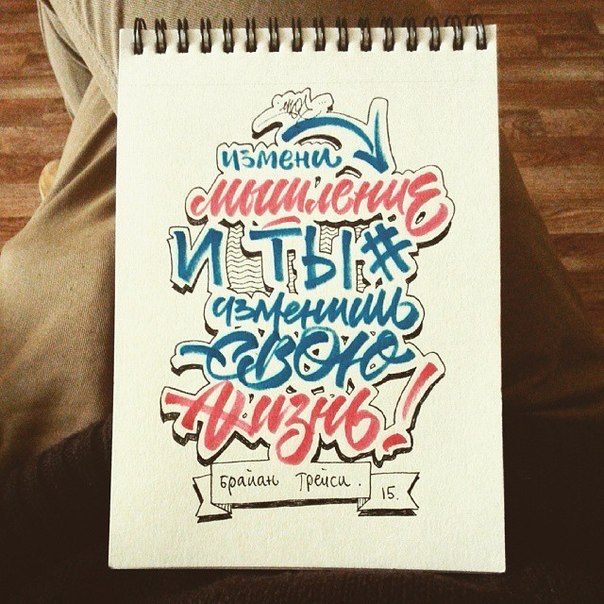 измени
мышление
и ты #
изменишь
свою
жизнь!
Брайан Трейси.
15.